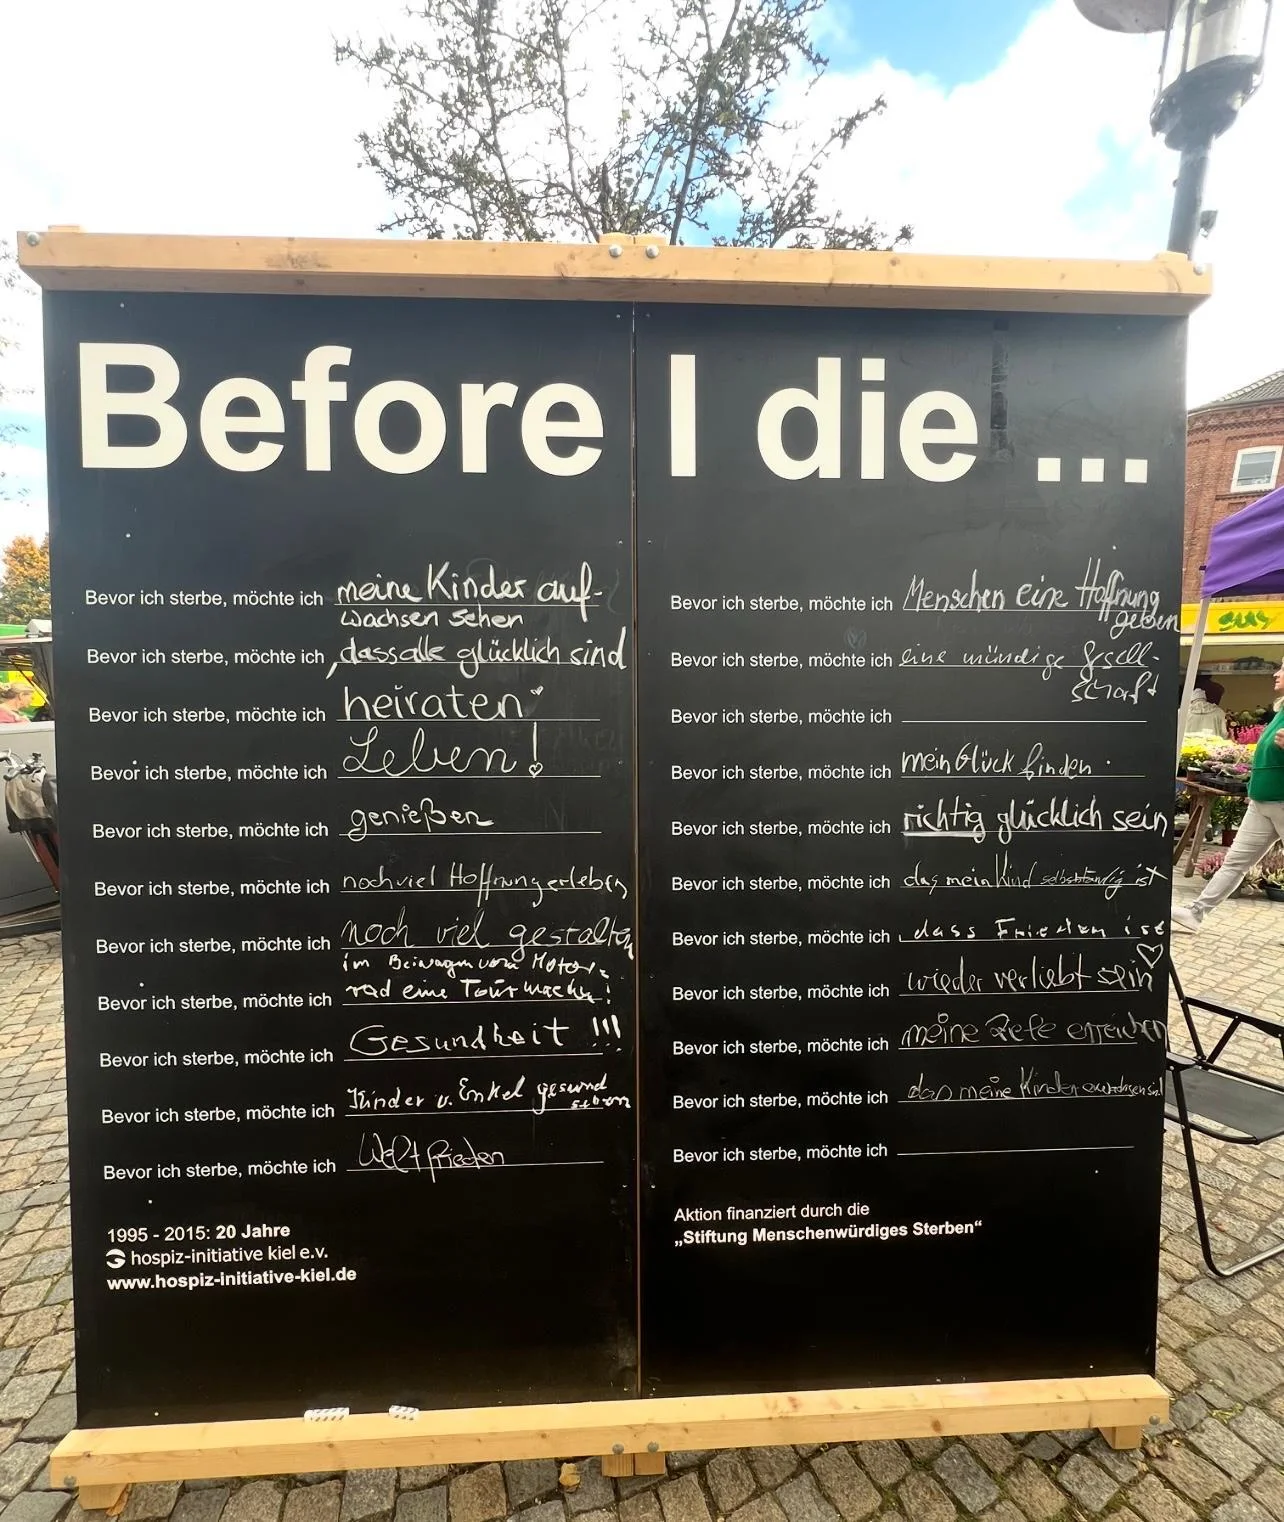 Before I die ...
Bevor ich sterbe, möchte ich meine Kinder auf-
wachsen sehen
Bevor ich sterbe, möchte ich, dass alle glücklich sind
Bevor ich sterbe, möchte ich heiraten
Bevor ich sterbe, möchte ich Leben!
Bevor ich sterbe, möchte ich genießen
Bevor ich sterbe, möchte ich noch viel Hoffnung erleben
Bevor ich sterbe, möchte ich noch viel gestalten
im Beiwagen vom Motor-
Bevor ich sterbe, möchte ich rad eine Tour machen!
Bevor ich sterbe, möchte ich Gesundheit !!!
Bevor ich sterbe, möchte ich Kinder u. Enkel gesund
sehen
Bevor ich sterbe, möchte ich Weltfrieden
1995 - 2015: 20 Jahre
hospiz-initiative kiel e.v.
www.hospiz-initiative-kiel.de
Bevor ich sterbe, möchte ich Menschen eine Hoffnung
geben
Bevor ich sterbe, möchte ich eine mündige Gsell-
schaft
Bevor ich sterbe, möchte ich
Bevor ich sterbe, möchte ich mein Glück finden.
Bevor ich sterbe, möchte ich richtig glücklich sein
Bevor ich sterbe, möchte ich das mein Kind selbstständig ist
Bevor ich sterbe, möchte ich, dass Frieden ist
Bevor ich sterbe, möchte ich wieder verliebt sein
Bevor ich sterbe, möchte ich meine Reife erreichen
Bevor ich sterbe, möchte ich das meine Kinder erwachsen sind
Bevor ich sterbe, möchte ich
Aktion finanziert durch die
„Stiftung Menschenwürdiges Sterben“